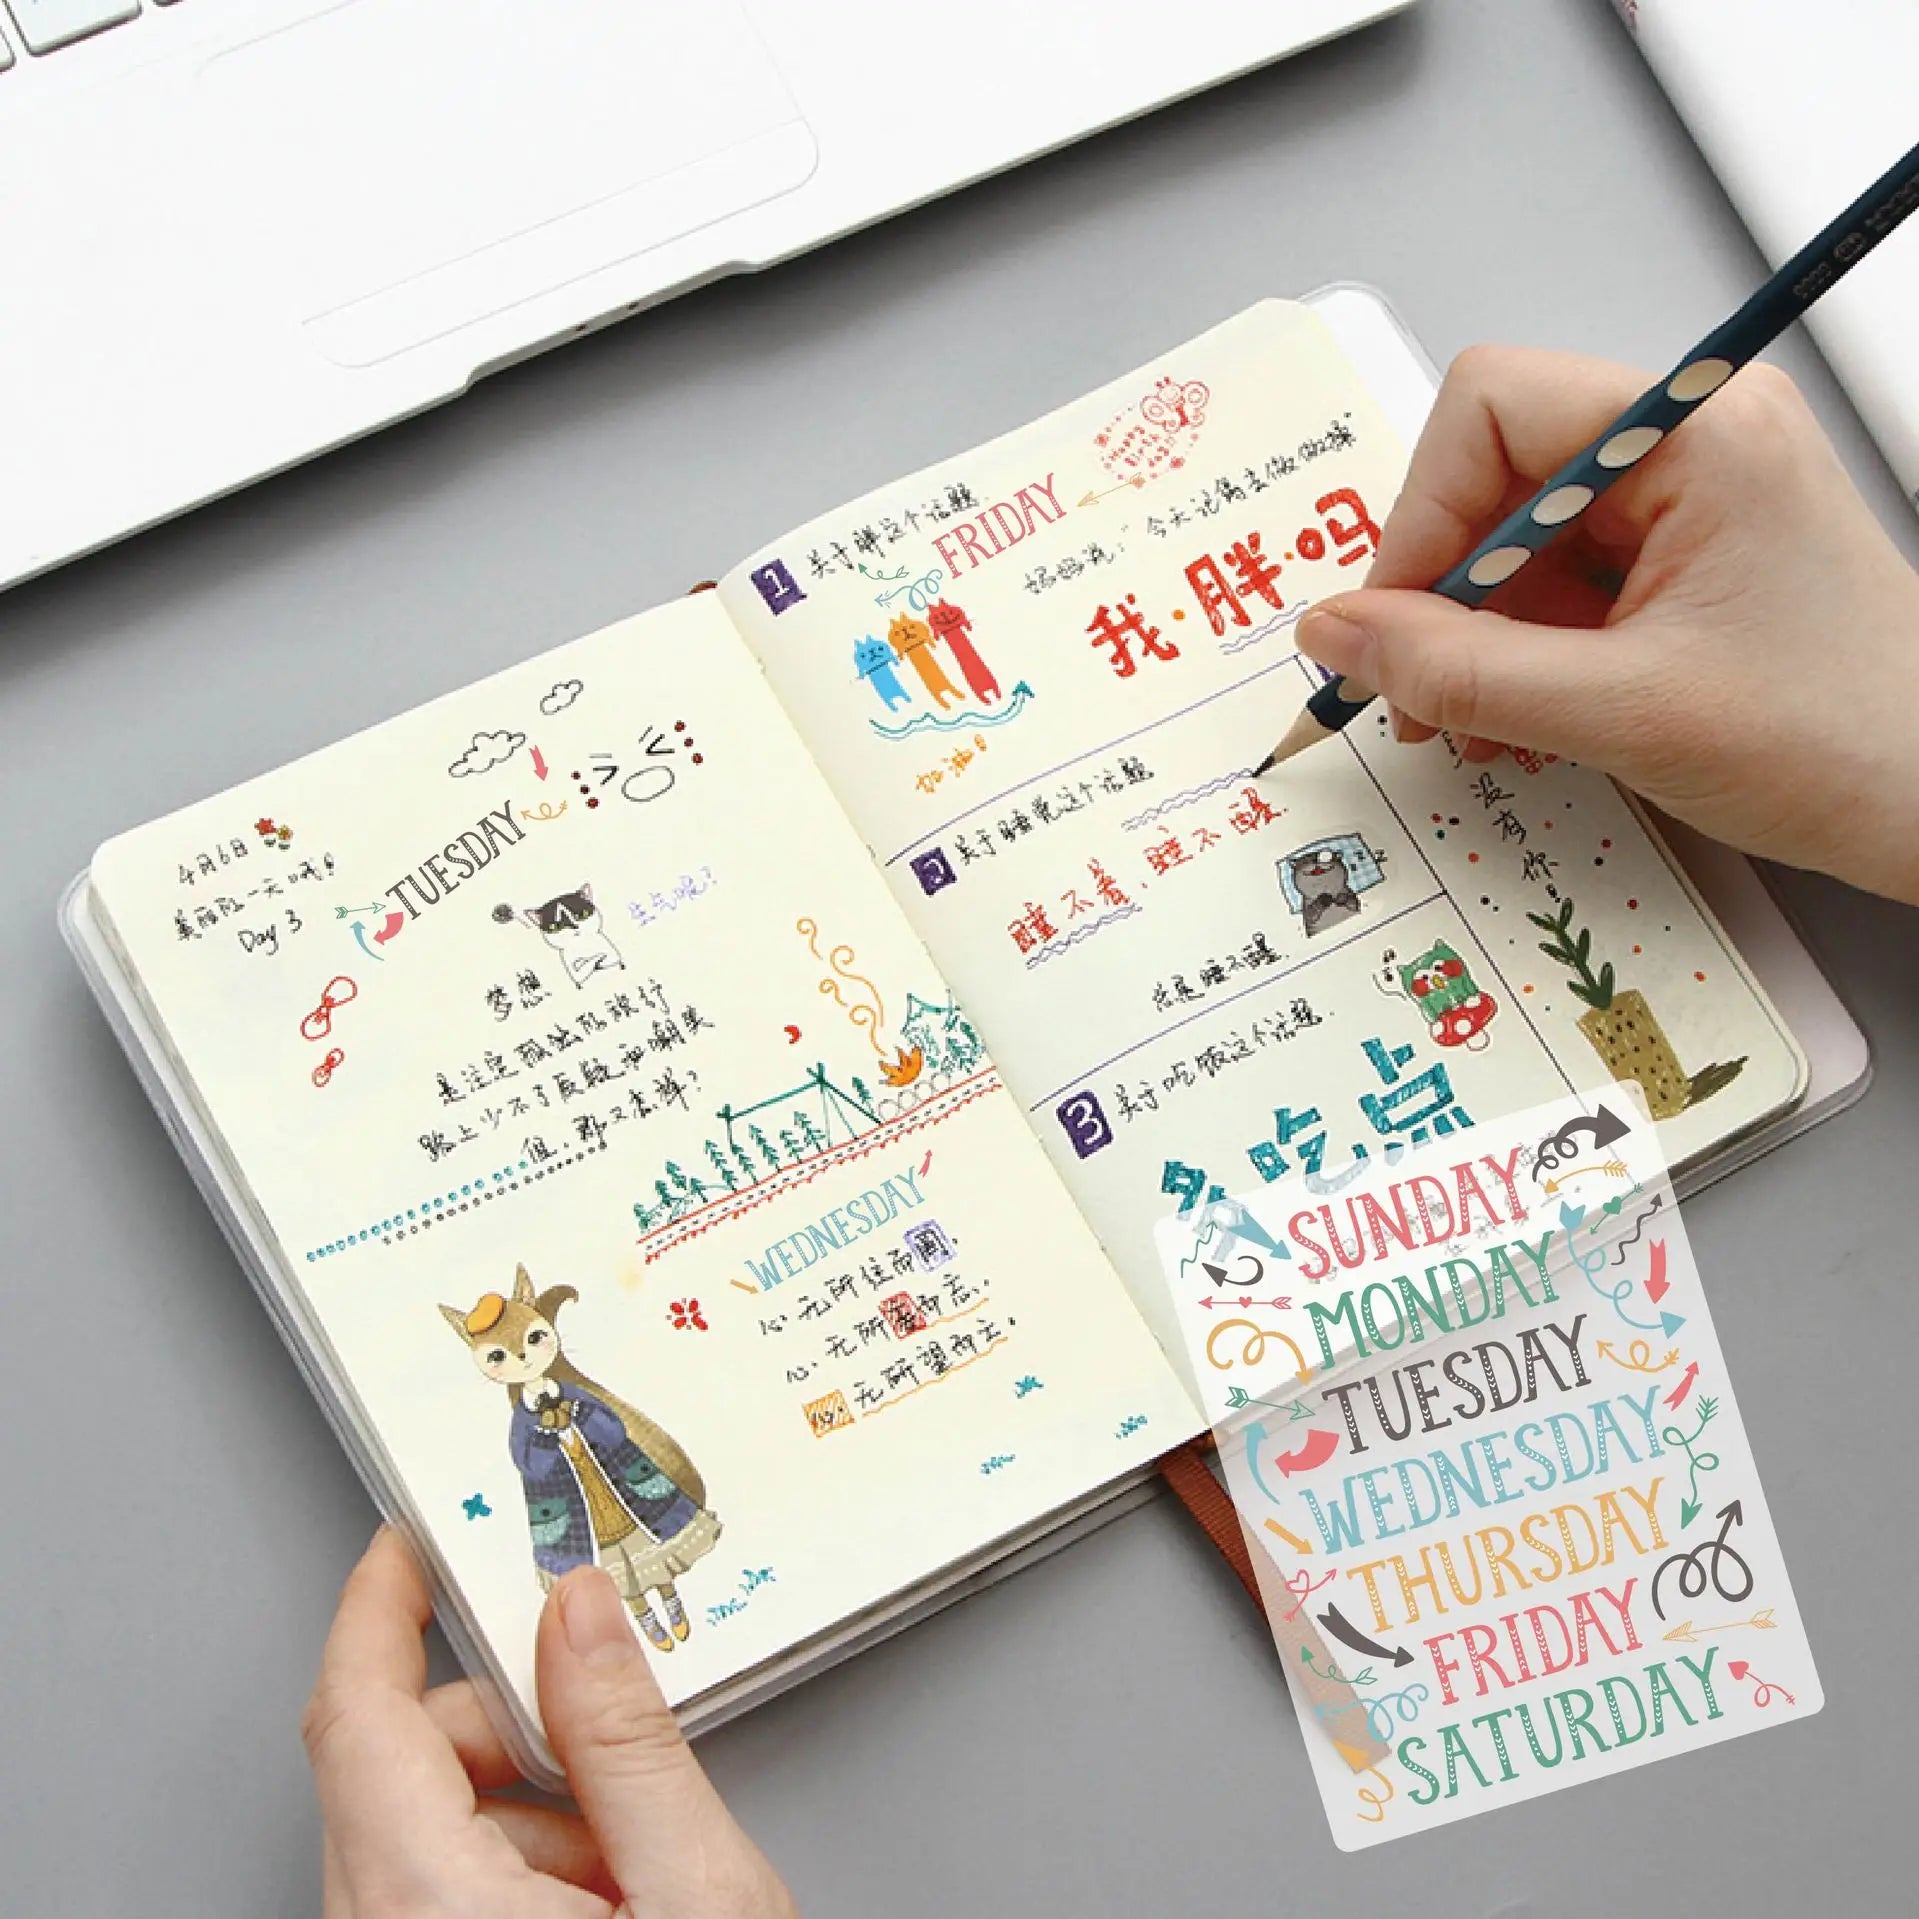 4月6日
美丽的一天哦!
Day 3
TUESDAY
生气呢?
梦想
是注定孤独的旅行
路上少不了质疑和嘲笑
但,那又怎样?
WEDNESDAY
心无所住而
心无所
无所望而立.
1 关于胖这个话题.
FRIDAY
Happy
Birth
day!
妈妈说:"今天记得去做做操"
我·胖·吗
加油!
2 关于睡觉这个话题
睡不着,睡不醒.
总是睡不醒.
没有你!
3 关于吃饭这个话题.
多吃点
SUNDAY
MONDAY
TUESDAY
WEDNESDAY
THURSDAY
FRIDAY
SATURDAY